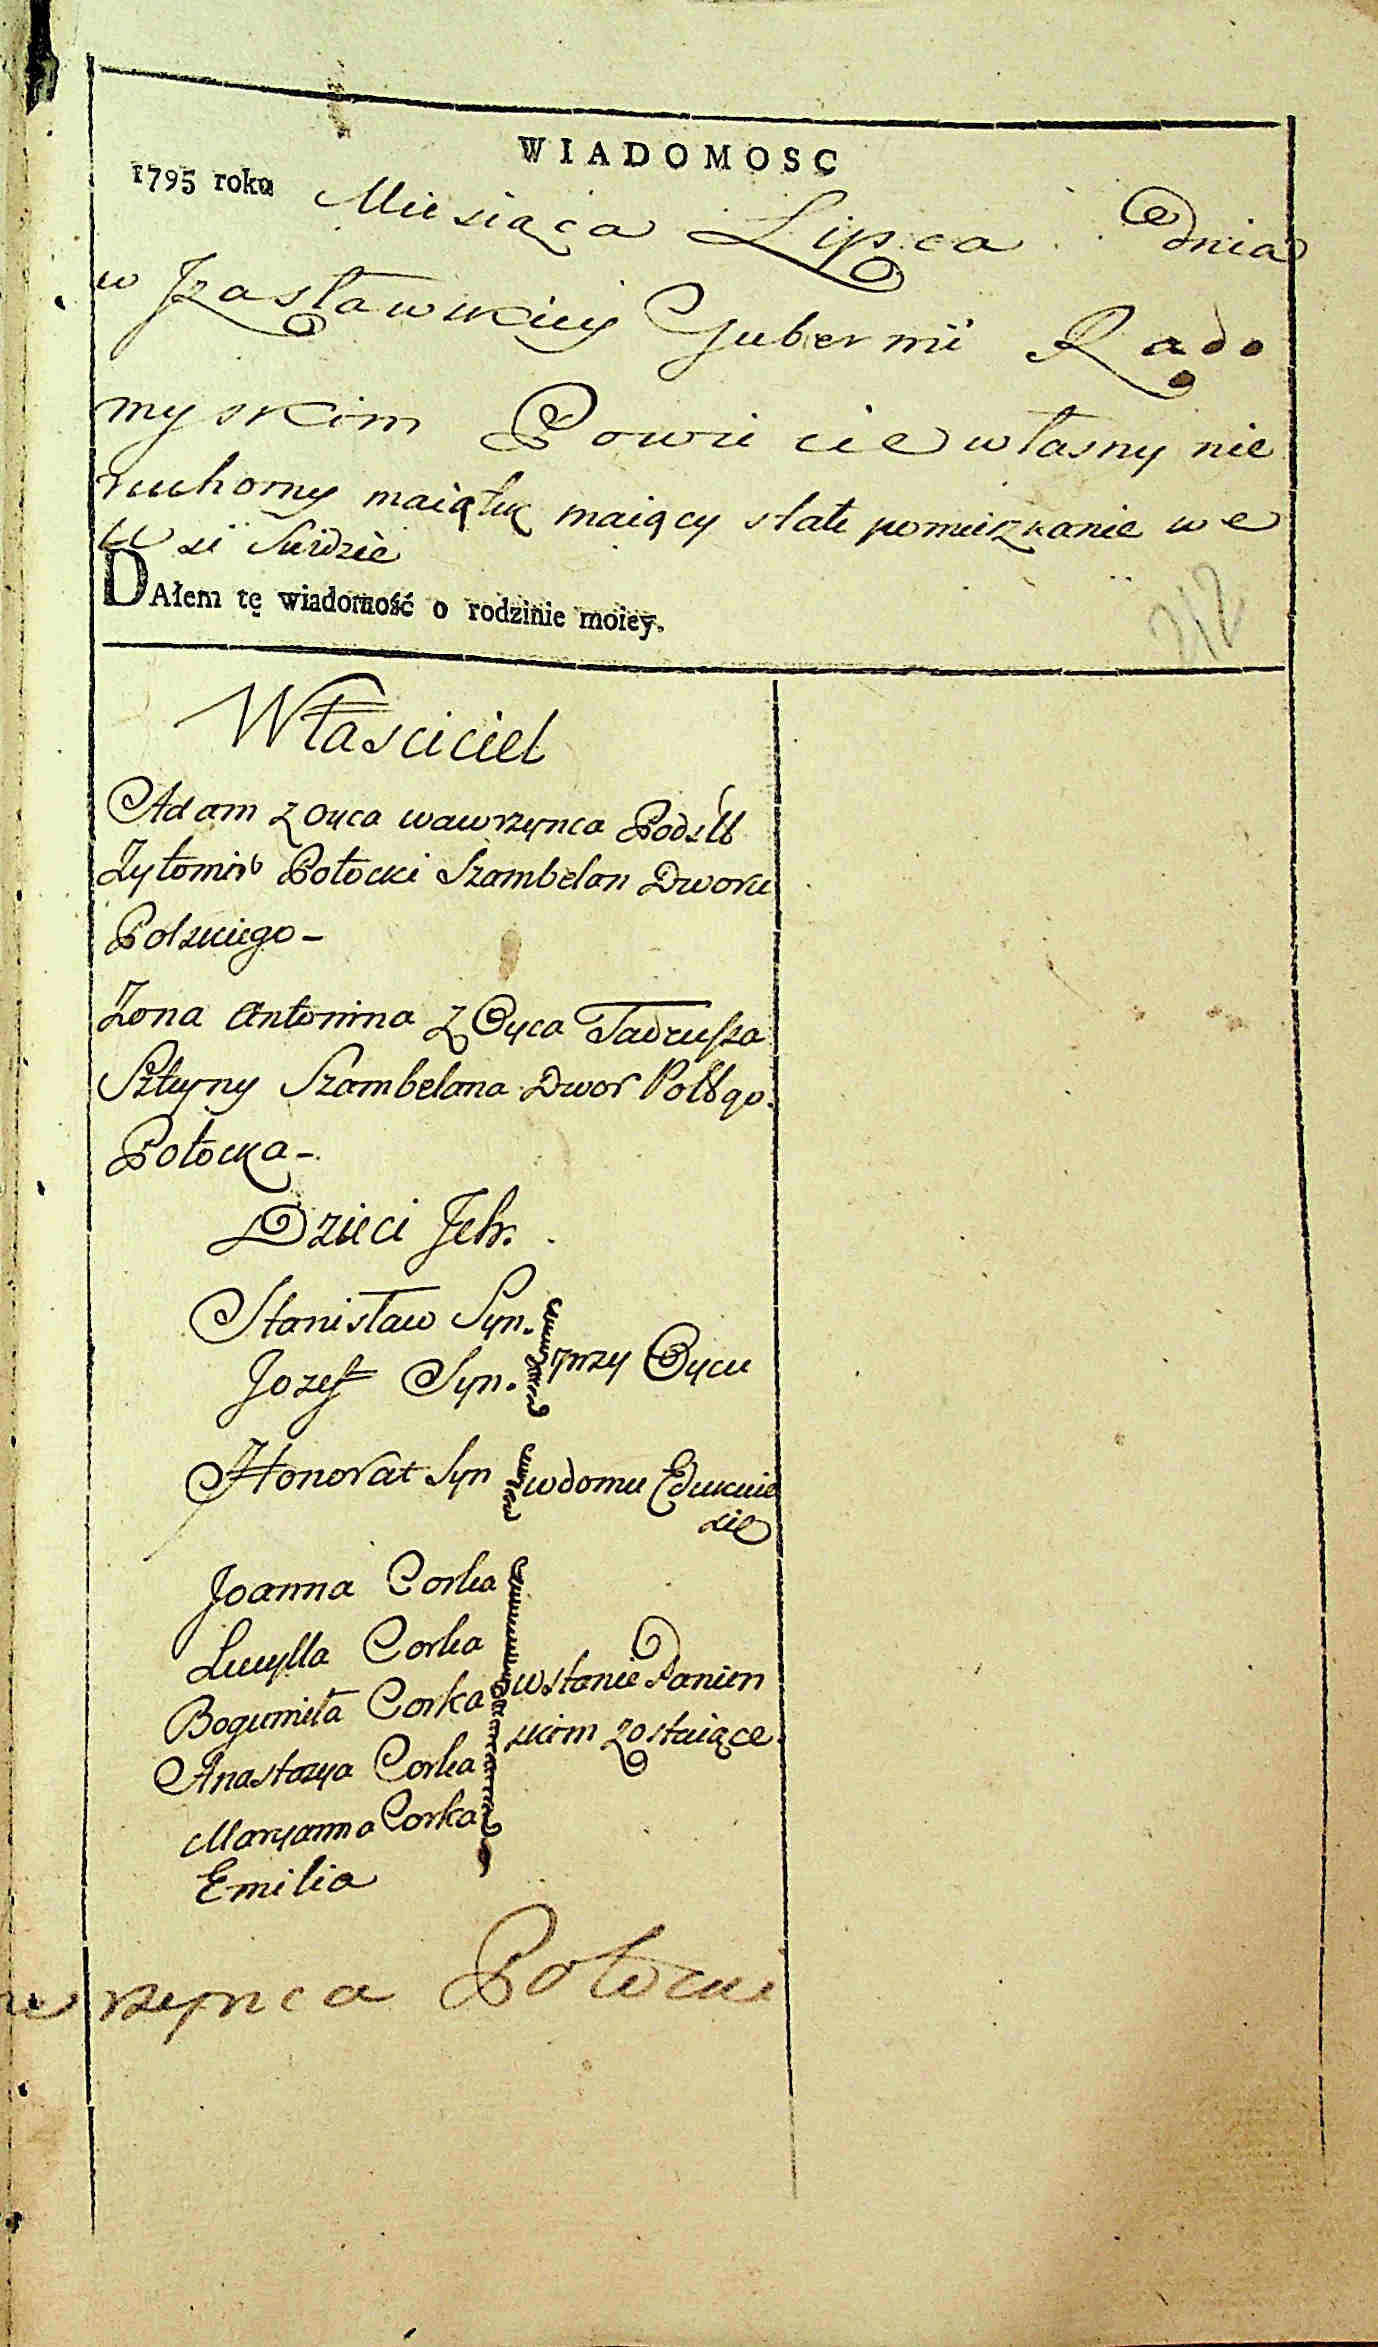 WIADOMOSC
1795 roku Miesiąca Lipca dnia
w Jzasławskiey Gubernii Rado
myskim Powiecie własny nie
ruchomy maiątek maiący stałe pomieszkanie we
Wsi
DAłem tę wiadomość o rodzinie moiey.
212
Własciciel
Adam z Oyca wawrzynca
Potocki Szambelan Dworu
Polskiego-
Zona Antonina z Oyca Tadeusza
Szambelana Dwor
Potocka-.
Dzieci Jch.
Stanisław Syn.
Jozef Syn. przy Oycu
Honorat Syn w domu Edukuie
sie
Joanna Corka
Lucylla Corka
Bogumiła Corka w stanie Panien
skim zostaiące.
Anastazya Corka
Maryanna Corka
Emilia
rzynca Potocki